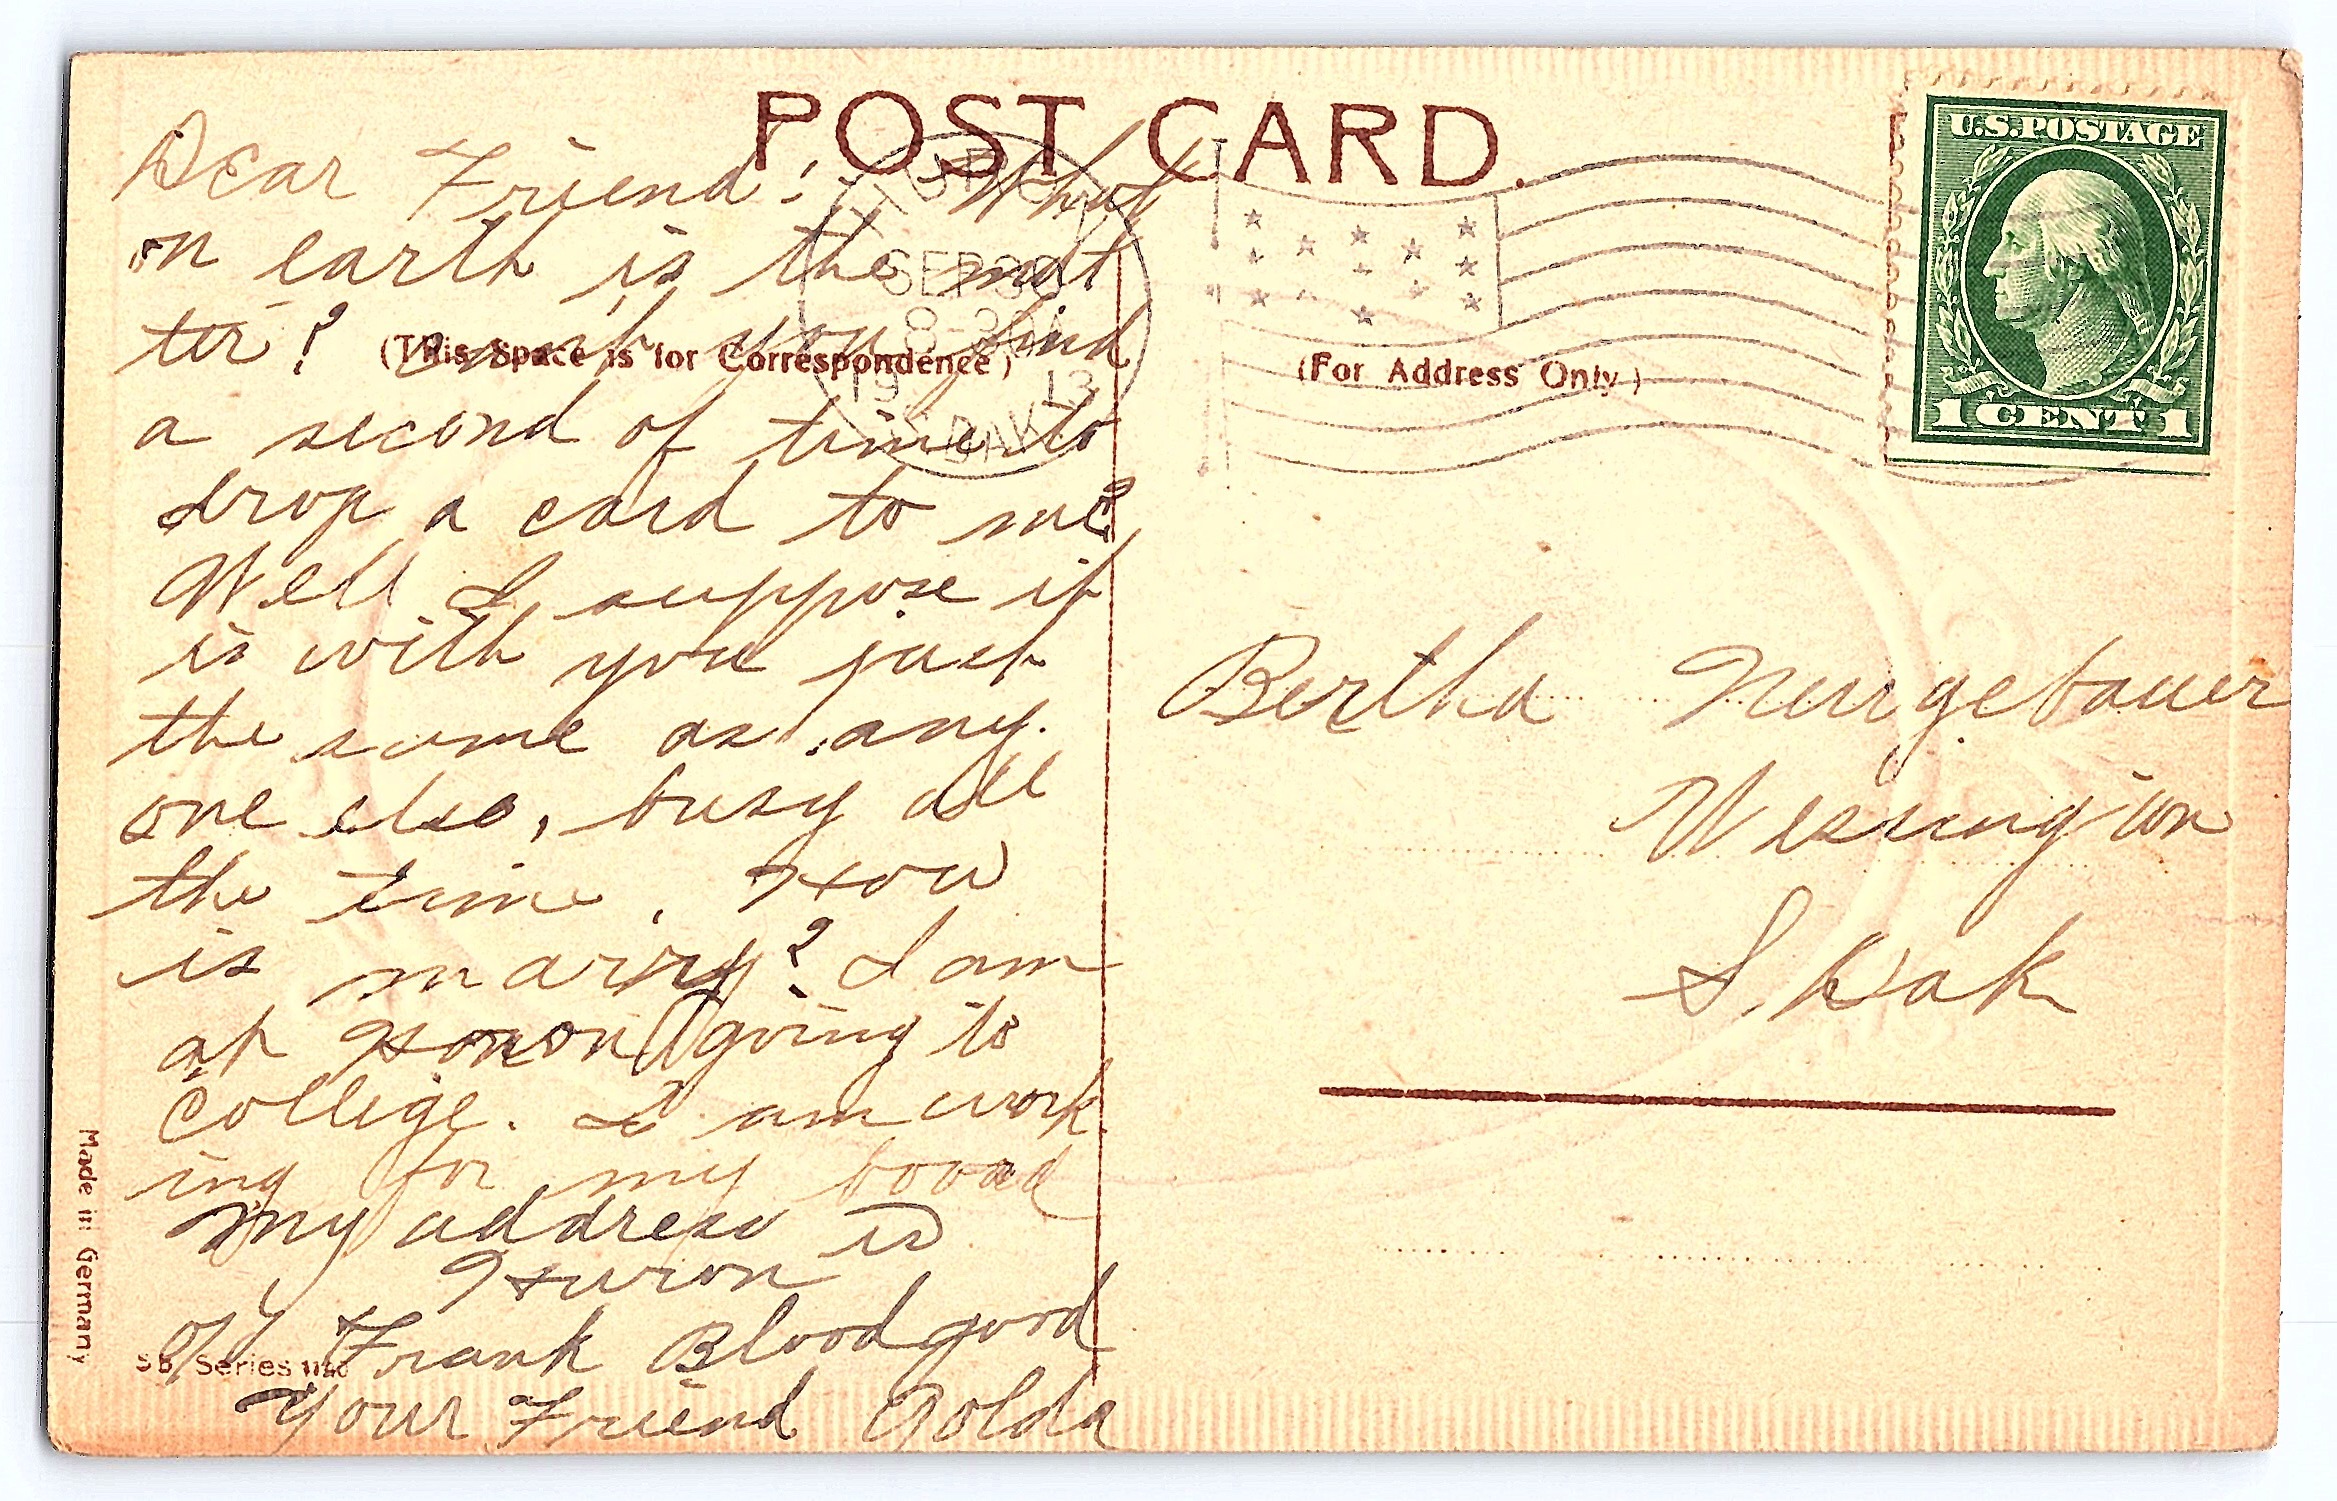 POST CARD.
U.S. POSTAGE
1 CENT 1
HURON
SEP 30
8-30A
1913
S. DAK.
(This Space is for Correspondence)
(For Address Only)
Dear Friend: What
on earth is the mat
ter? Can't you find
a second of time to
drop a card to me?
Well I suppose it
is with you just
the same as any.
one else, busy all
the time. How
is marry? I am
at Huron going to
College. I am work.
ing for my board
My address is
Huron
c/o Frank Bloodgood
Your Friend Golda
Bertha Neugebauer
Wessington
S. Dak
Made in Germany
SB Series